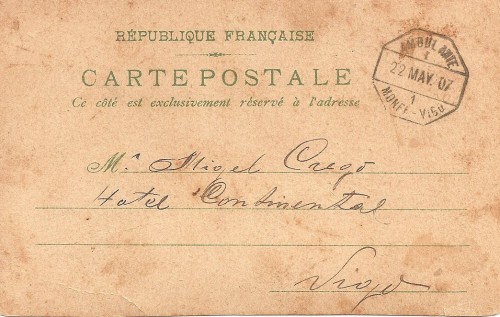 RÉPUBLIQUE FRANÇAISE
CARTE POSTALE
Ce côté est exclusivement réservé à l'adresse
AMBULANTE
1
22 MAY. 07
1
MONFE-VIGO
M.ʳ Migel Crego
Hotel Continental
Vigo